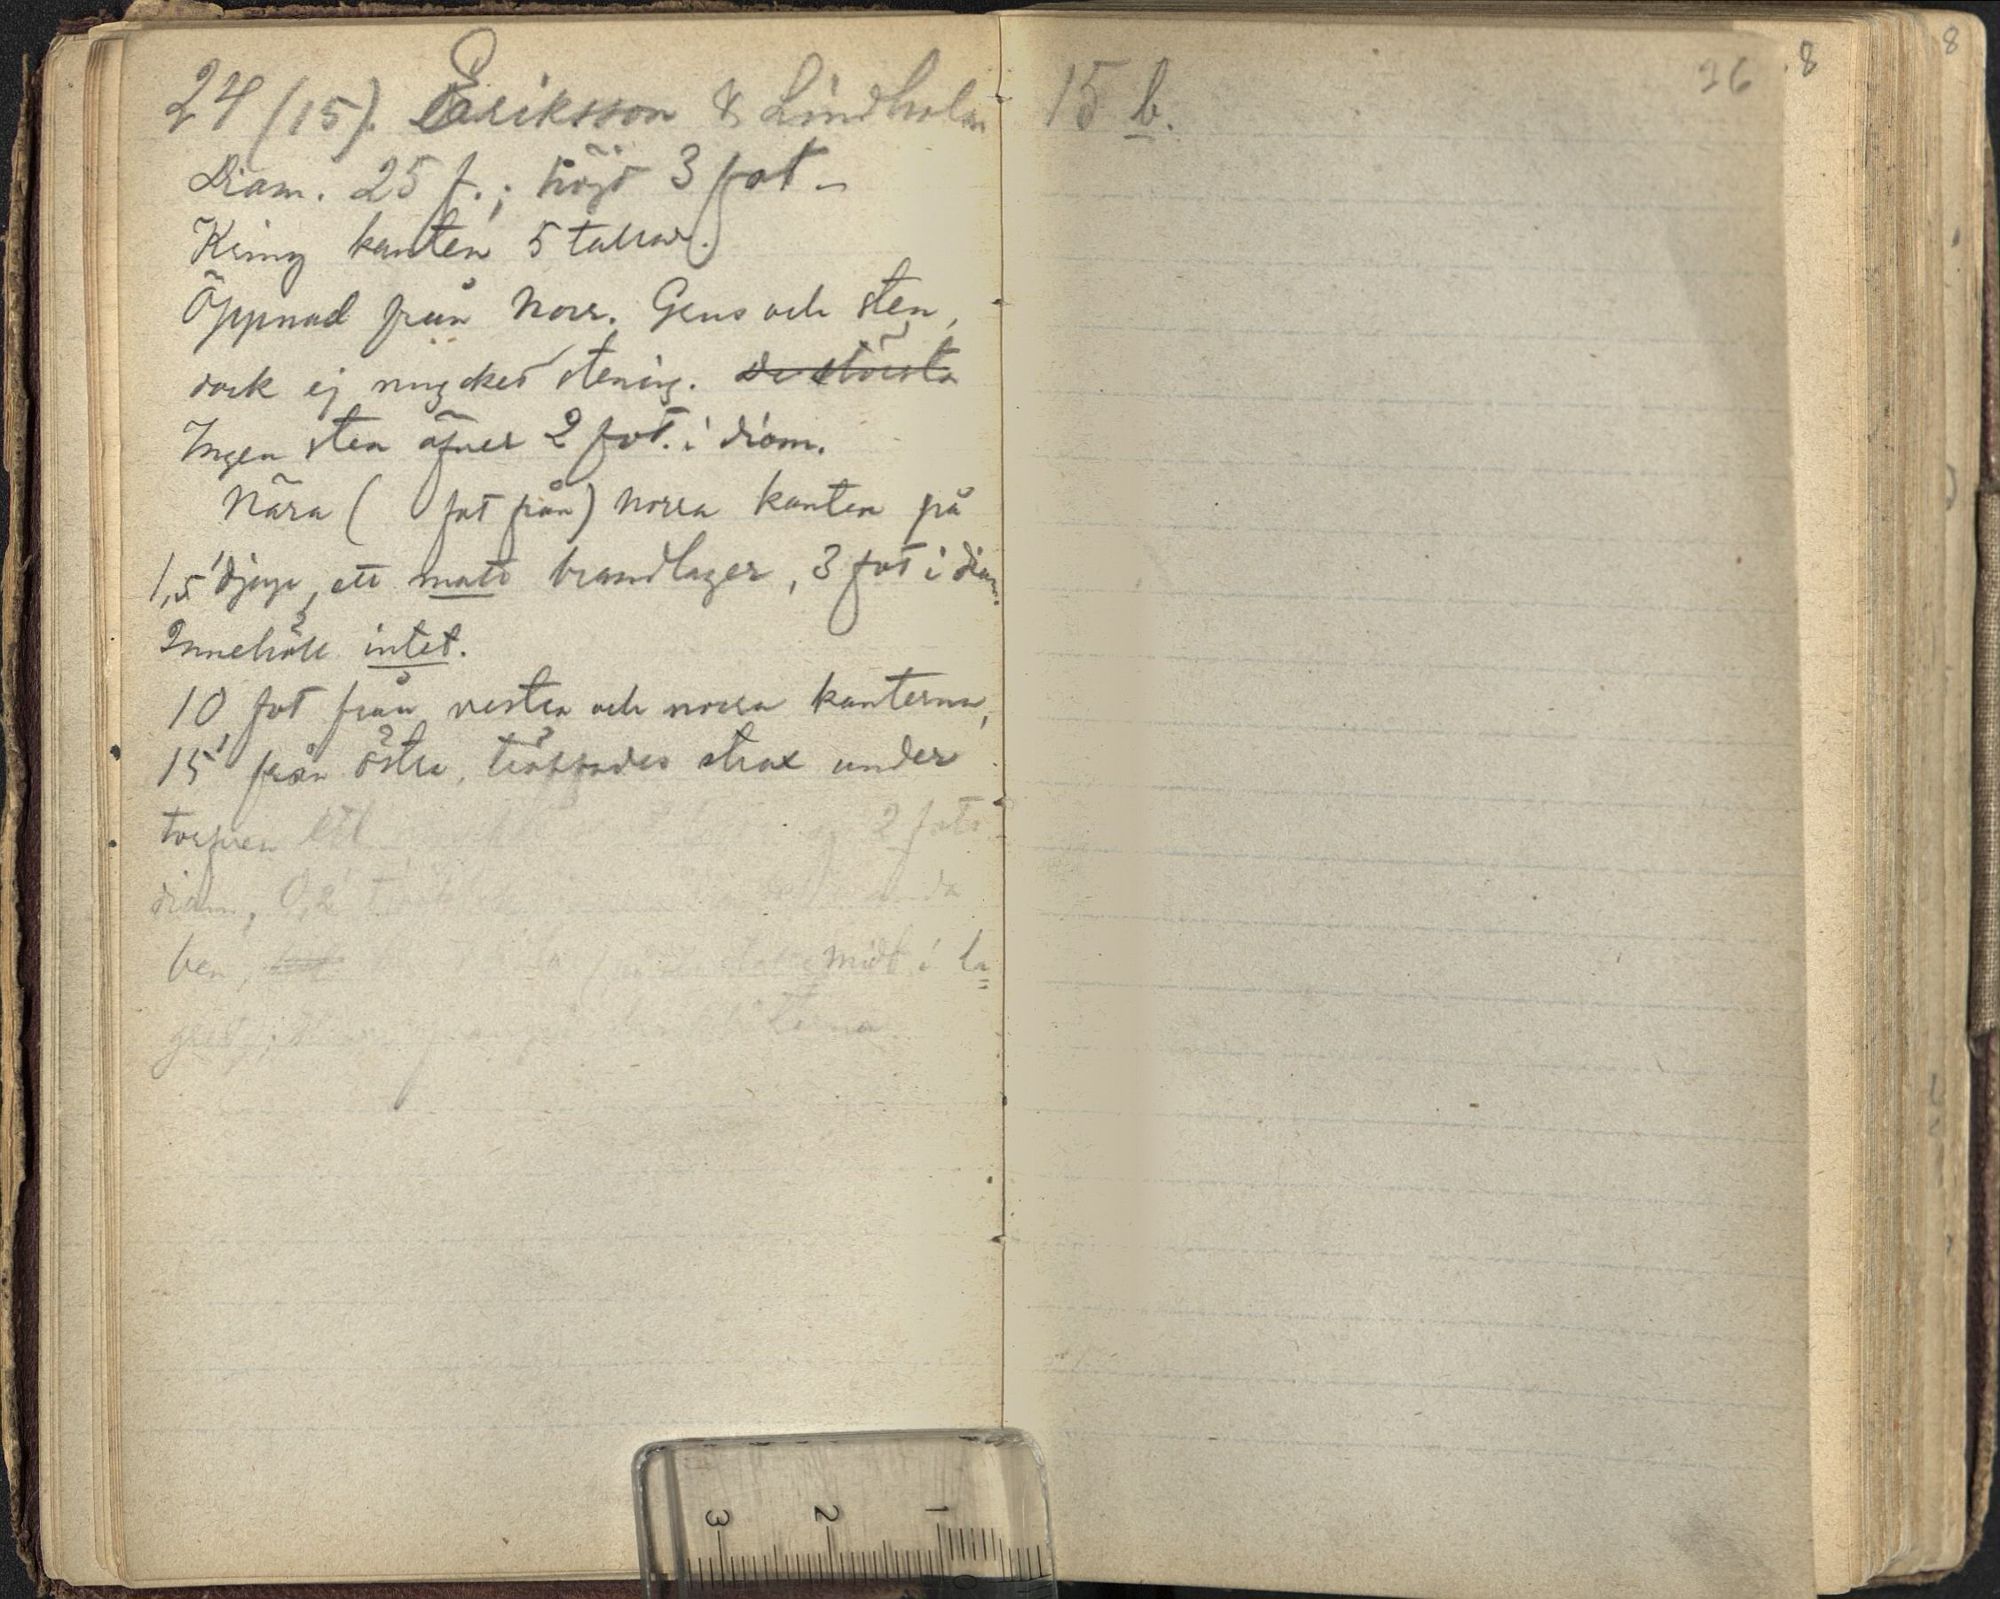 24 (15). Eriksson & Lindholm
Diam. 25 f.; höjd 3 fot –
Kring kanten 5 tallar.
Öppnad från Norr. Grus och sten,
dock ej mycket stenig. De största
Ingen sten öfver 2 fot. i diam.
Nära ( fot från) norra kanten på
1,5' djup, ett matt brandlager, 3 fot i diam.
Innehöll intet.
10 fot från vestra och norra kanterna,
15' från östra, träffades strax under
torfven ett 2 fots
diam, 0,2'
ben, midt i la=
gret;
15 b.
26
8
8
3 2 1 0